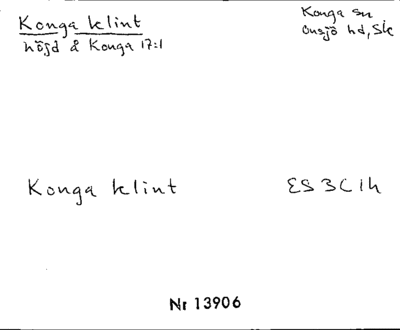 Konga klint
höjd å Konga 17:1
Konga sn
Onsjö hd, Sk
Konga klint
ES 3C1h
Nr 13906